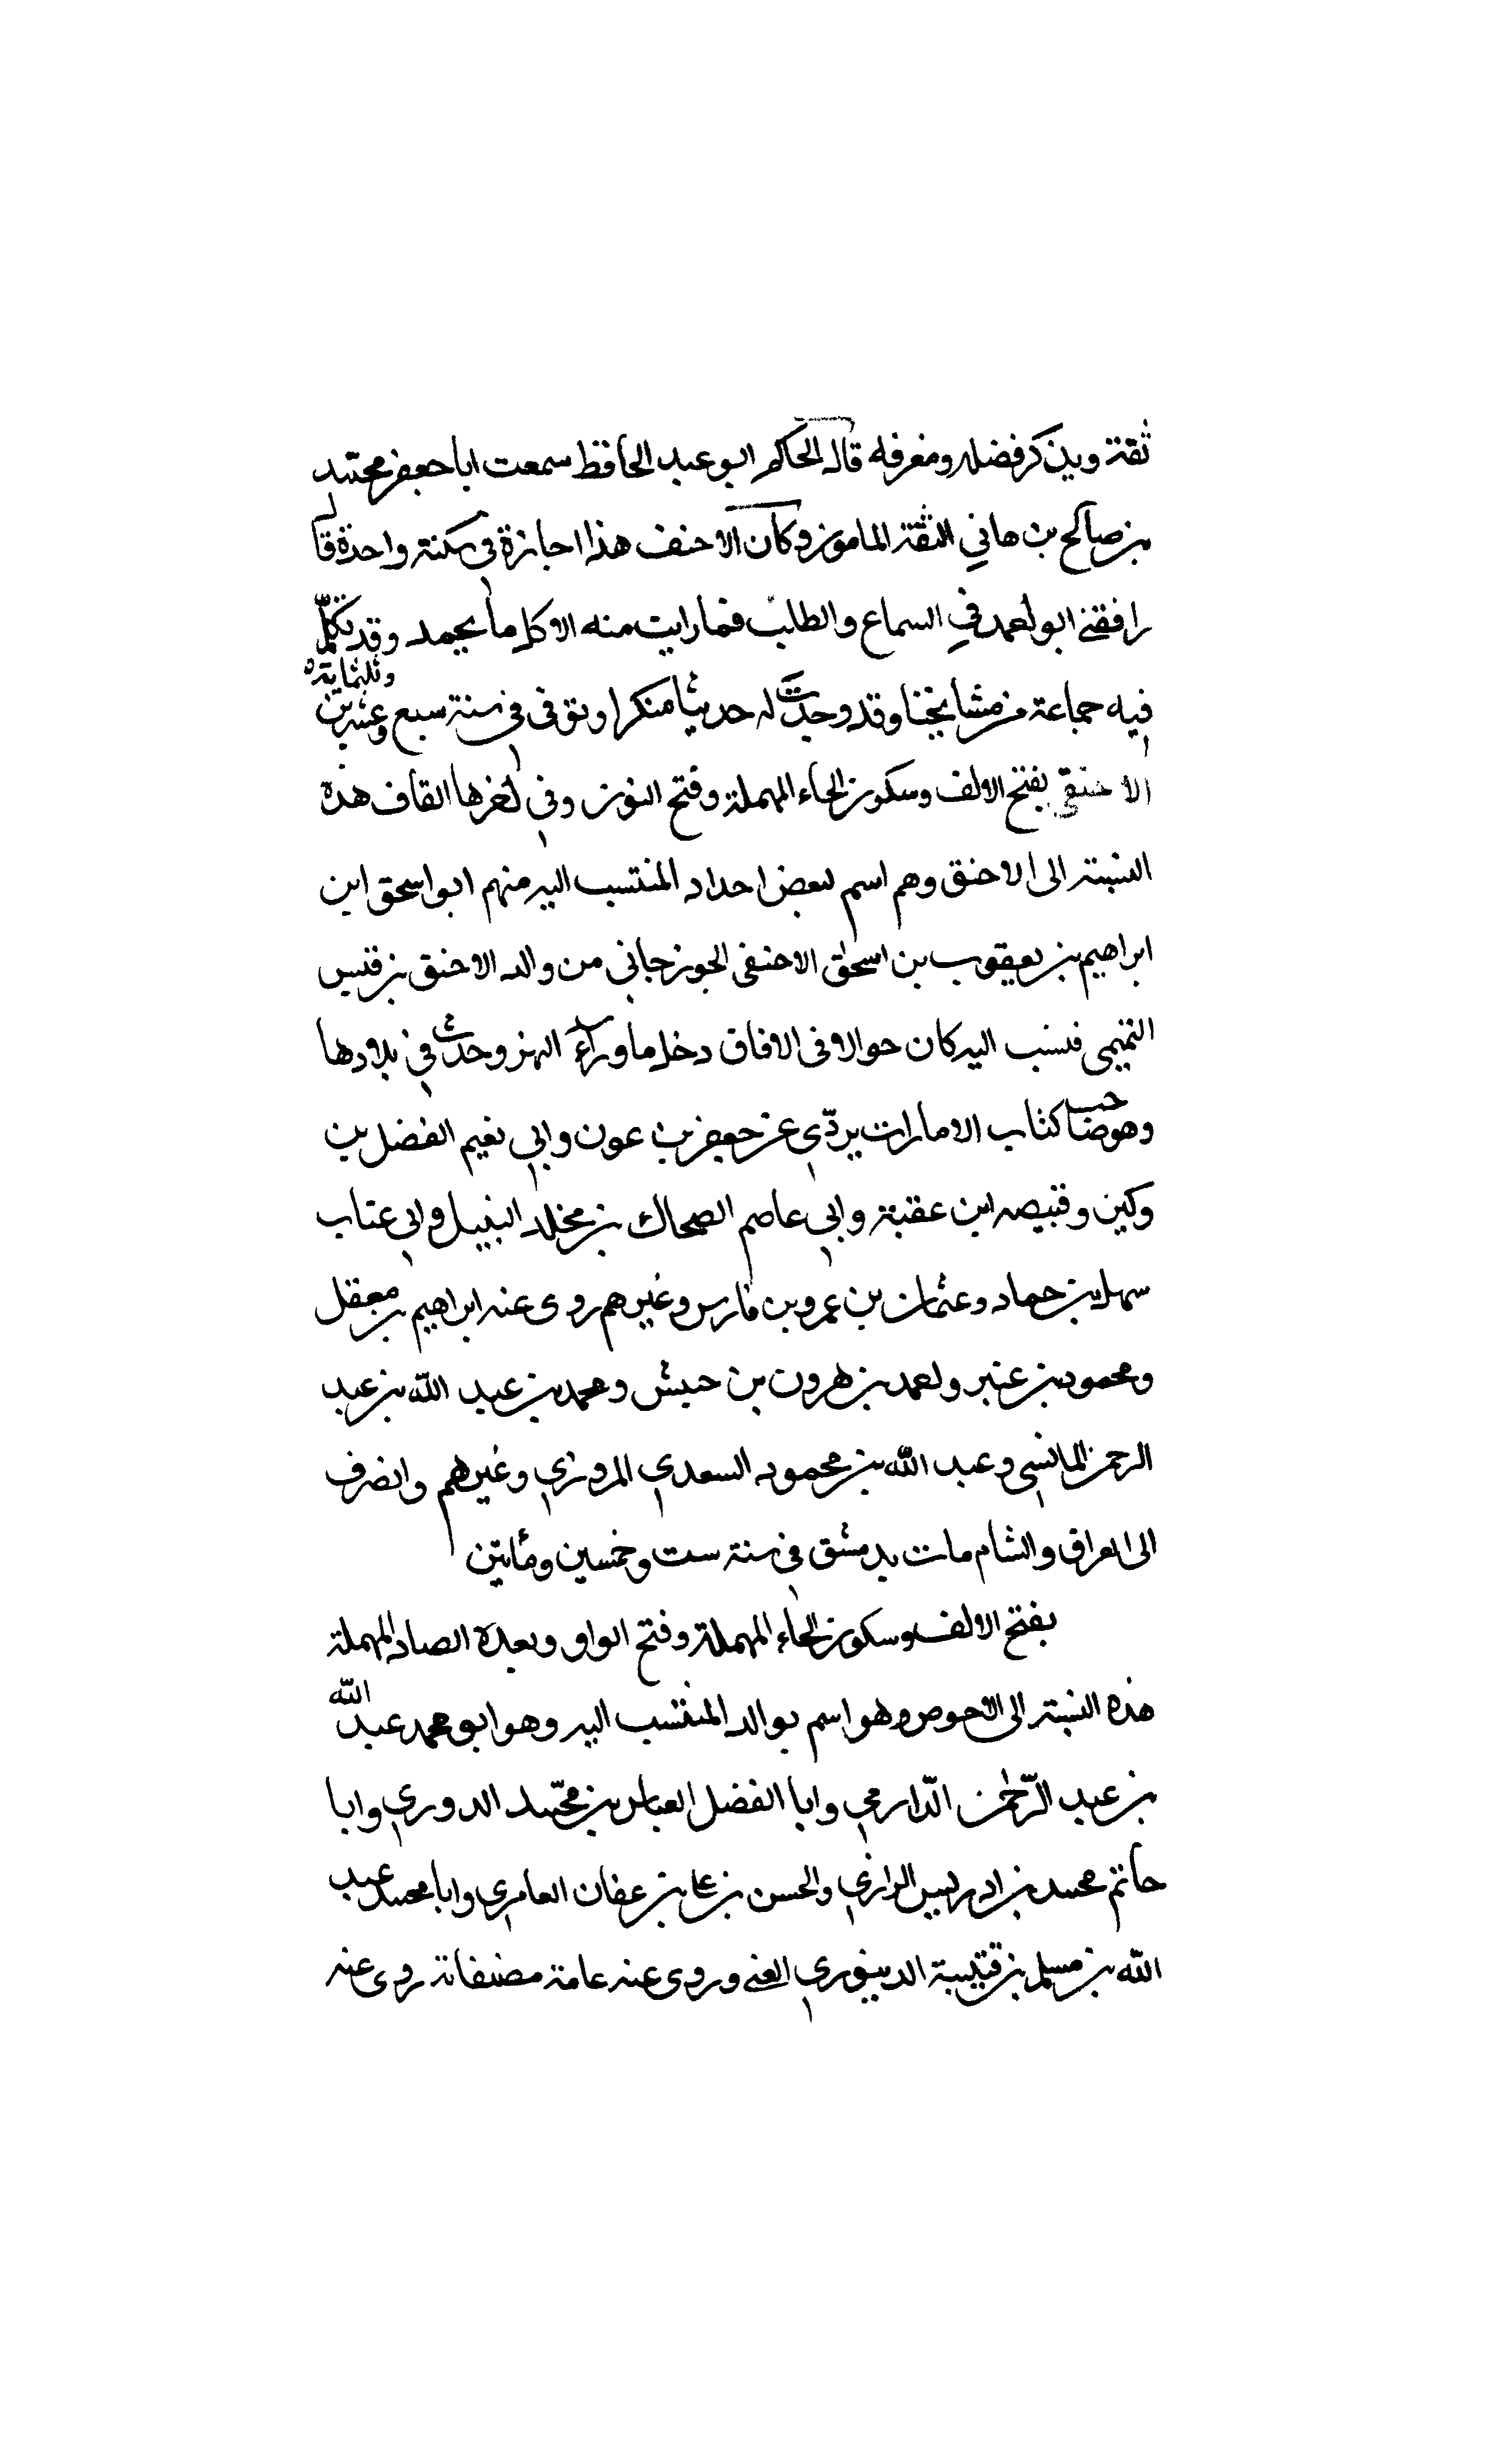 ثقة ويذكر فضله ومعرفه قال الحاكم ابو عبد الحافظ سمعت ابا جعفر محمد
بن صالح بن هاني الثقة المامون وكان الاحنف هذا اجازة في سكنة واحدة قال
رافقني ابو احمد في السماع والطلب فما رايت منه الا كل ما يحمد وقد تكلم
فيه جماعة من مشايخنا وقد وجدت له حديثا منكرا وتوفي في سنة سبع وعشرين وثلثماية
الاحنفي بفتح الالف وسكون الحاء المهملة وفتح النون وفي اخرها القاف هذه
النسبة الى الاحنق وهم اسم لبعض اجداد المنتسب اليه منهم ابو اسحق ابن
ابراهيم بن يعقوب بن اسحق الاحنفي الجوزجاني من والد الاحنق بن قيس
التميمي فنسب اليه كان جوالا في الافاق دخل ما وراء النهر وحدث في بلادها
وهو صاحب كتاب الامارات يروي عن جعفر بن عون وابي نعيم الفضل بن
وكين وقبيصه ابن عقبة وابي عاصم الضحاك بن مخلد النبيل وابي عتاب
سهل بن حماد وعثمان بن عمرو بن فارس وغيرهم روى عنه ابراهيم بن معقل
ومحمود بن عنبر واحمد بن هرون بن حبش ومحمد بن عبد الله بن عبد
الرحمن المانسي وعبد الله بن محمود السعدي المروزي وغيرهم وانصرف
الى العراق والشام مات بدمشق في سنة ست وخمسين ومأتين
بفتح الالف وسكون الحاء المهملة وفتح الواو وبعده الصاد المهملة
هذه النسبة الى الاحوص وهو اسم بوالد المنتسب اليه وهو ابو محمد عبد الله
بن عبد الرحمن الدارمي وابا الفضل العباس بن محمد الدوري وابا
حاتم محمد بن ادريس الرازي والحسن بن علي بن عفان العامري وابا محمد عبد
الله بن مسلم بن قتيبة الدينوري وروى عنه عامة مصنفاته روى عنه